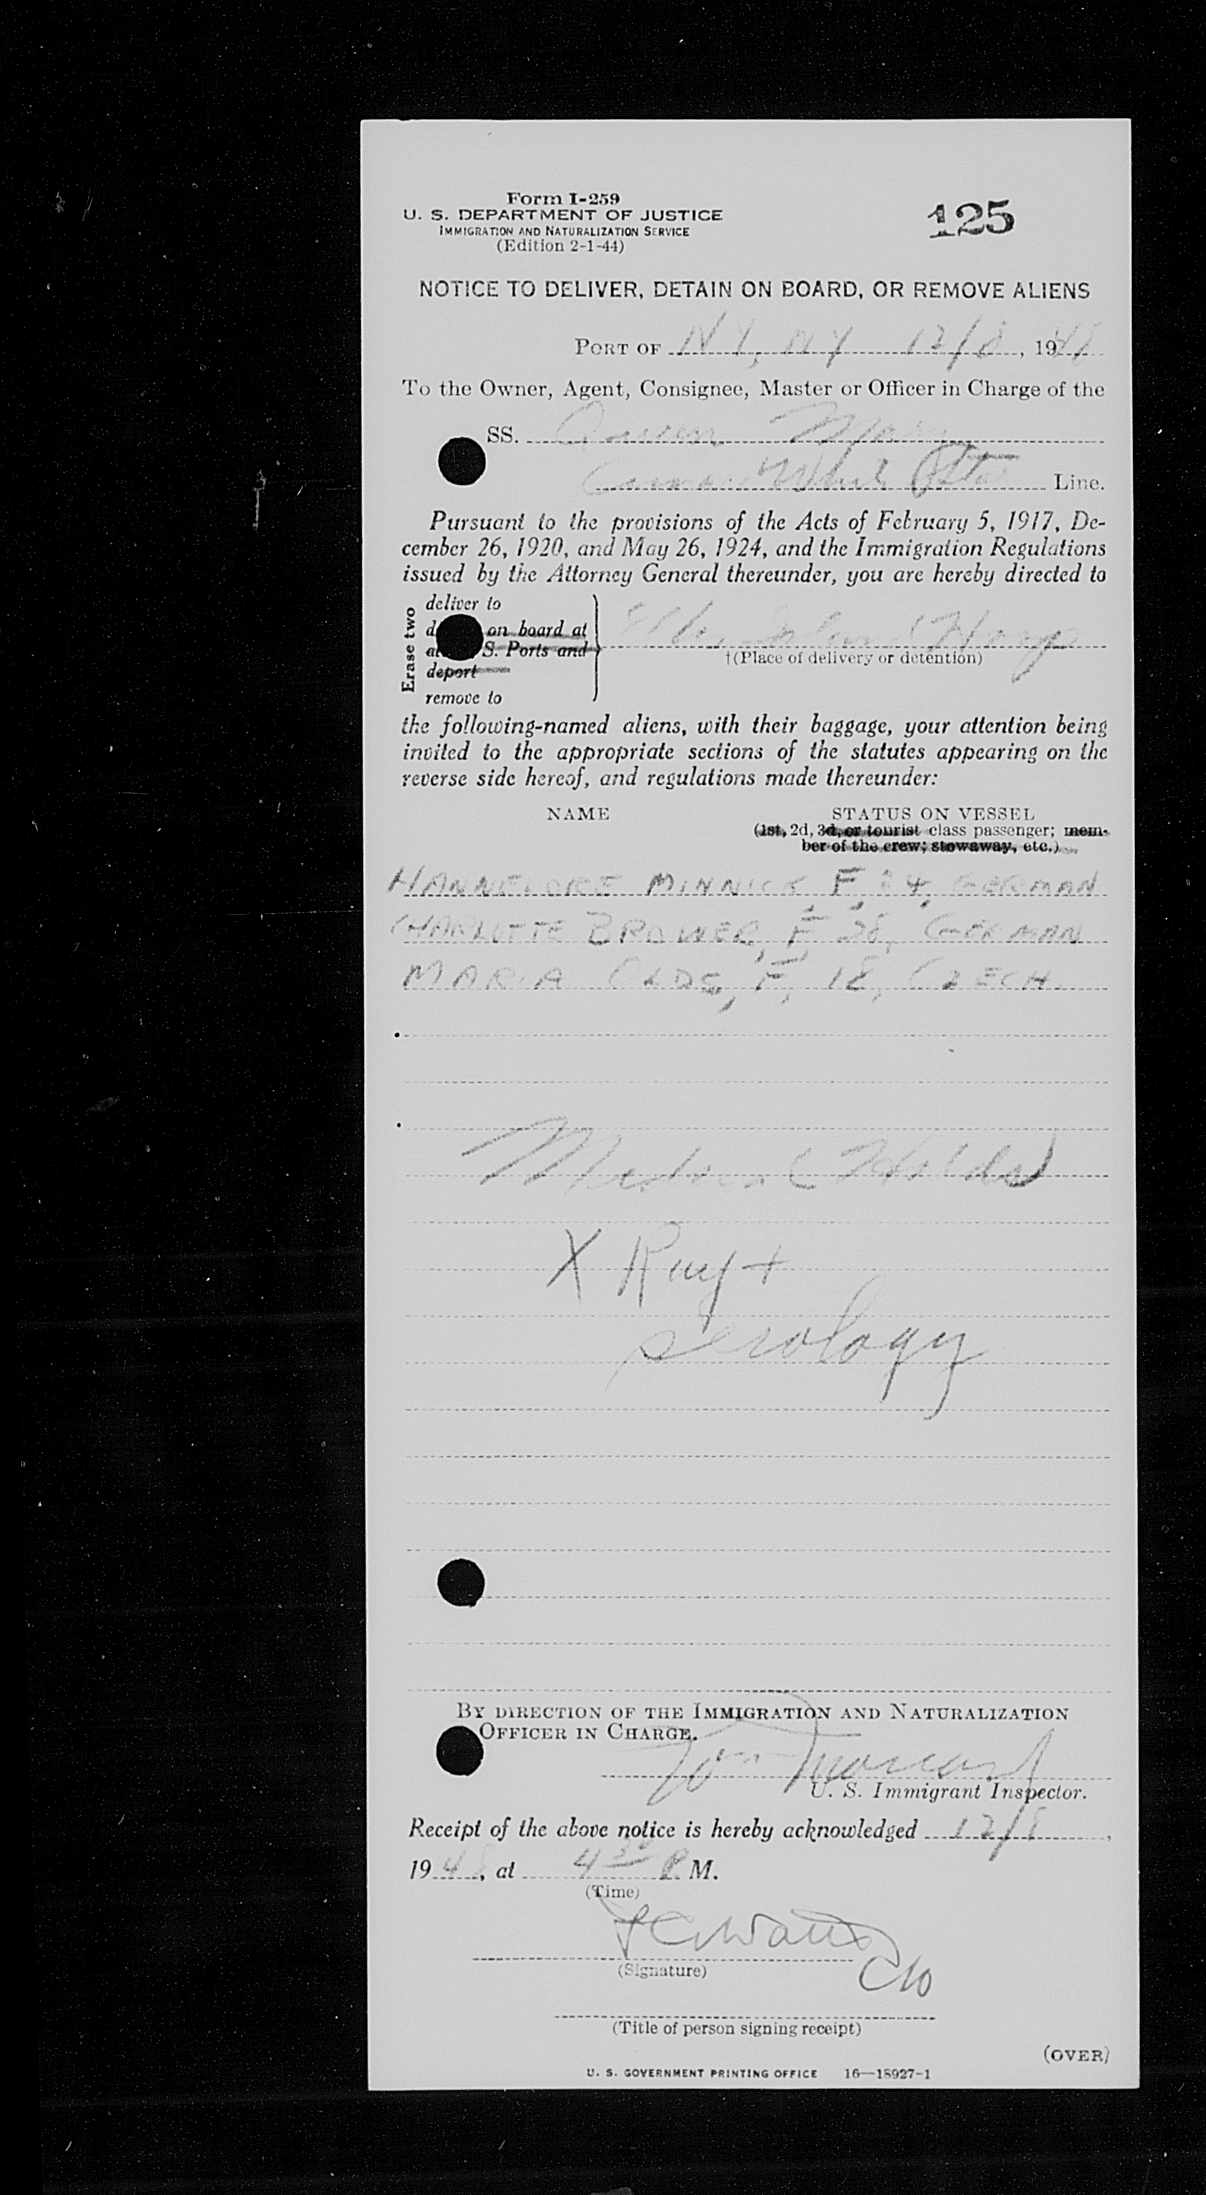 Form I-259
U. S. DEPARTMENT OF JUSTICE
IMMIGRATION AND NATURALIZATION SERVICE
(Edition 2-1-44)
125
NOTICE TO DELIVER, DETAIN ON BOARD, OR REMOVE ALIENS
PORT OF NY, NY 12/8, 1948
To the Owner, Agent, Consignee, Master or Officer in Charge of the
SS. Queen Mary
Cunard White Star Line.
Pursuant to the provisions of the Acts of February 5, 1917, De-
cember 26, 1920, and May 26, 1924, and the Immigration Regulations
issued by the Attorney General thereunder, you are hereby directed to
Erase two
deliver to
on board at
S. Ports and
deport
remove to
Ellis Island Hosp
†(Place of delivery or detention)
the following-named aliens, with their baggage, your attention being
invited to the appropriate sections of the statutes appearing on the
reverse side hereof, and regulations made thereunder:
NAME STATUS ON VESSEL
(1st, 2d, 3d, or tourist class passenger; mem-
ber of the crew; stowaway, etc.)
HANNELORE MINNICK, F, 24, GERMAN
CHARLOTTE BROWER, F, 28, GERMAN
MARIA OLDS, F, 18, CZECH
Medical Holds
X Ray +
serology
BY DIRECTION OF THE IMMIGRATION AND NATURALIZATION
OFFICER IN CHARGE.
U. S. Immigrant Inspector.
Receipt of the above notice is hereby acknowledged 12/8,
1948, at 4 30 P. M.
(Time)
(Signature)
(Title of person signing receipt)
(OVER)
U. S. GOVERNMENT PRINTING OFFICE 16—18927-1